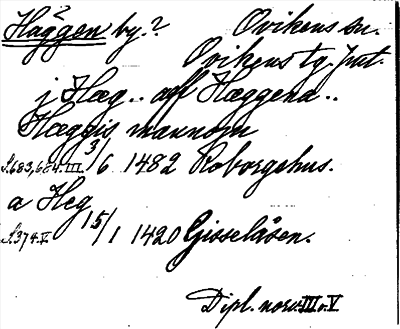 Häggen by.? Ovikens sn.
Ovikens tg. Jmt.
j Hæg.. aff Hæggena..
Hæggis mannom
S.683,684.III. 3/6 1482 Roborgshus.
a Heg
S.374.V 15/1 1420 Gisselåsen.
Dipl. norv. III o. V